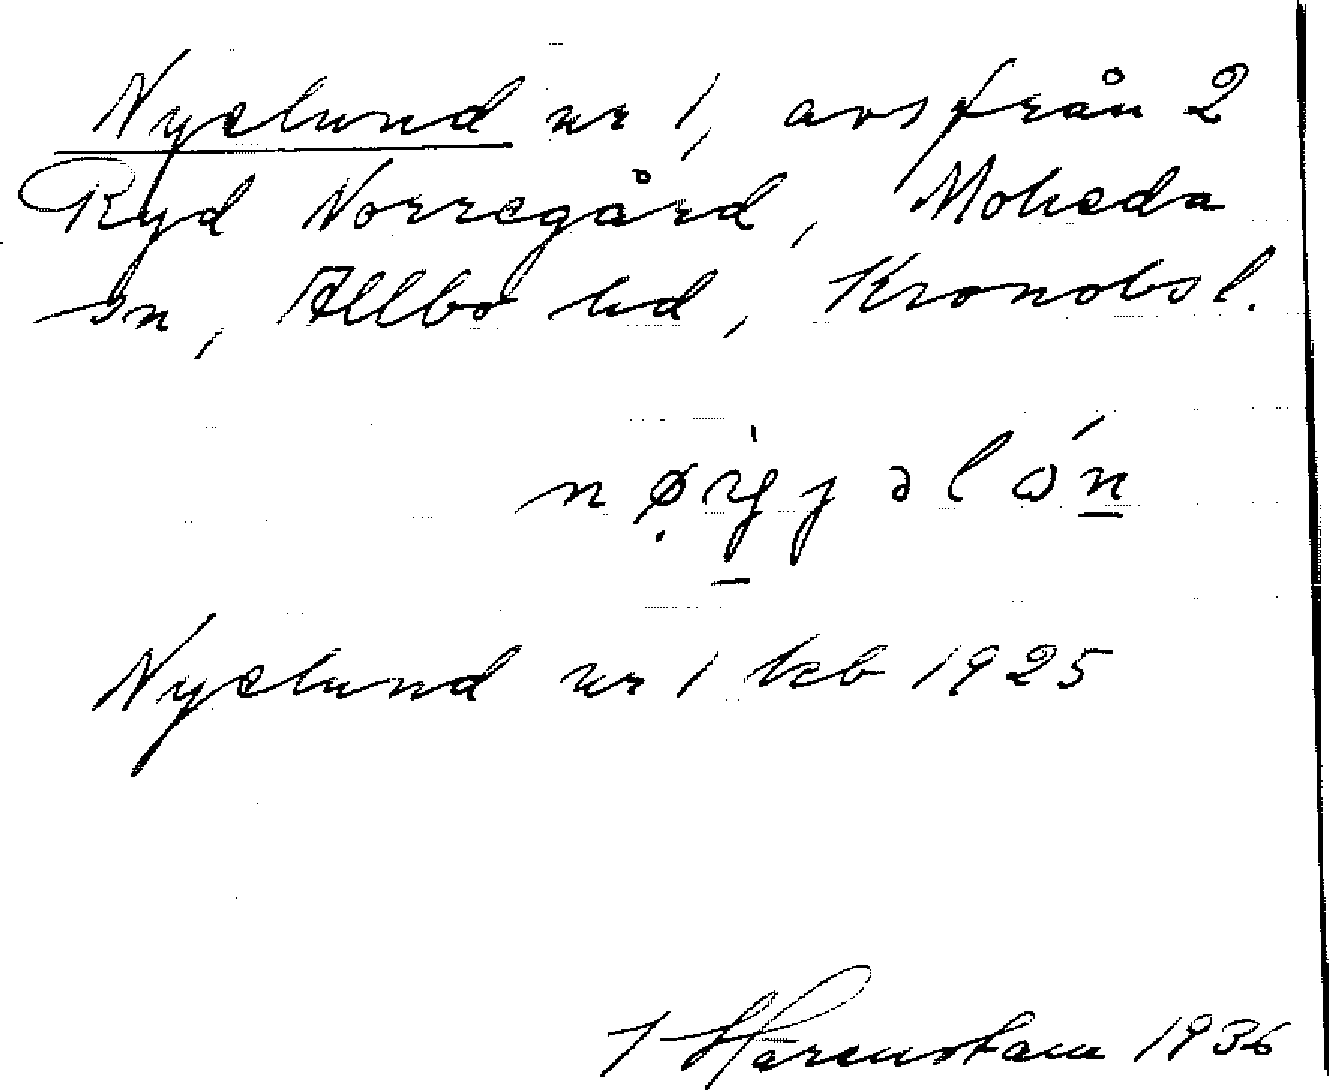 Nyelund nr 1, avs från 2
Ryd Norregård, Moheda
sn, Allbo hd, Kronobsl.
Nyelund nr 1 kb 1925
J Härenstam 1936